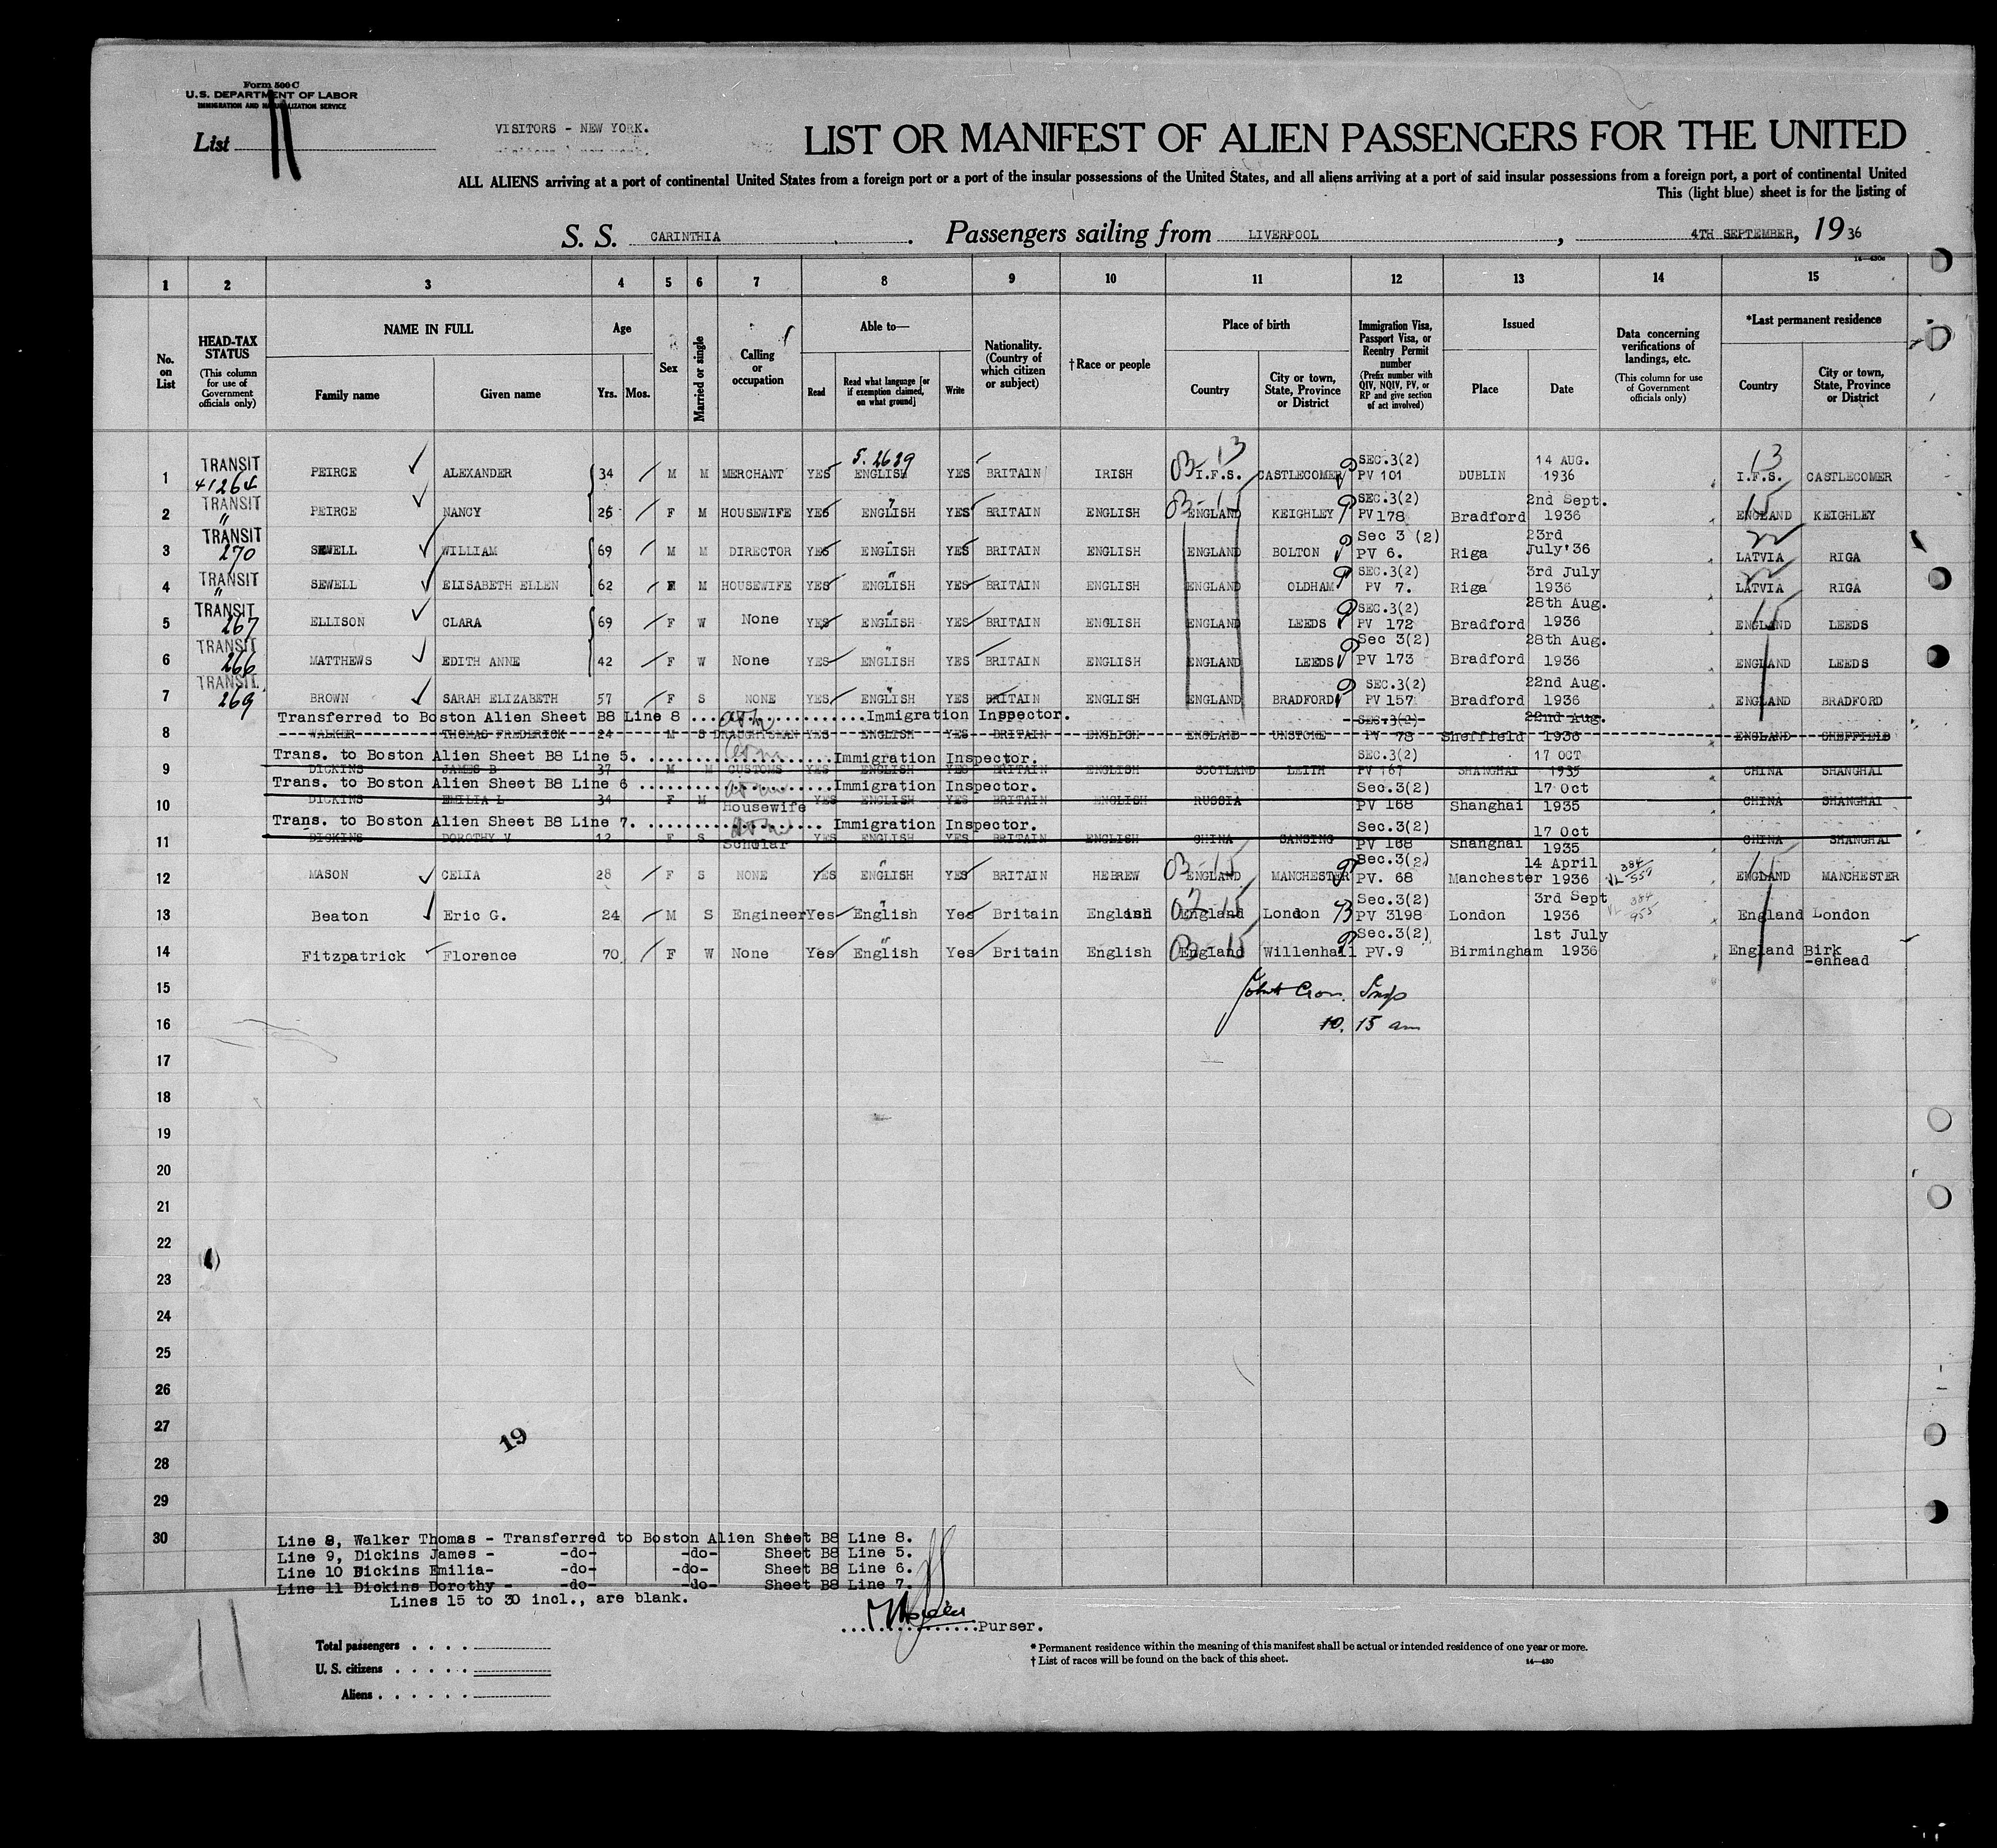 Form 500 C
U.S. DEPARTMENT OF LABOR
IMMIGRATION AND NATURALIZATION SERVICE
List 11
VISITORS - NEW YORK.
LIST OR MANIFEST OF ALIEN PASSENGERS FOR THE UNITED
ALL ALIENS arriving at a port of continental United States from a foreign port or a port of the insular possessions of the United States, and all aliens arriving at a port of said insular possessions from a foreign port, a port of continental United
This (light blue) sheet is for the listing of
S. S. CARINTHIA. Passengers sailing from LIVERPOOL, 4TH SEPTEMBER, 1936
1 2 3 4 5 6 7 8 9 10 11 12 13 14 15
No. on List
HEAD-TAX STATUS (This column for use of Government officials only)
NAME IN FULL Family name Given name
Age Yrs. Mos.
Sex
Married or single
Calling or occupation
Able to— Read Read what language [or if exemption claimed, on what ground] Write
Nationality. (Country of which citizen or subject)
†Race or people
Place of birth Country City or town, State, Province or District
Immigration Visa, Passport Visa, or Reentry Permit number (Prefix number with QIV, NQIV, PV, or RP and give section of act involved)
Issued Place Date
Data concerning verifications of landings, etc. (This column for use of Government officials only)
*Last permanent residence Country City or town, State, Province or District
1 TRANSIT 41264 PEIRCE ALEXANDER 34 M M MERCHANT YES 5.2639 ENGLISH YES BRITAIN IRISH 03-13 I.F.S. CASTLECOMER SEC.3(2) PV 101 DUBLIN 14 AUG. 1936 13 I.F.S. CASTLECOMER
2 TRANSIT " PEIRCE NANCY 25 F M HOUSEWIFE YES ENGLISH YES BRITAIN ENGLISH 03-15 ENGLAND KEIGHLEY SEC.3(2) PV 178 Bradford 2nd Sept. 1936 15 ENGLAND KEIGHLEY
3 TRANSIT 270 SEWELL WILLIAM 69 M M DIRECTOR YES ENGLISH YES BRITAIN ENGLISH ENGLAND BOLTON Sec 3 (2) PV 6. Riga 23rd July'36 22 LATVIA RIGA
4 TRANSIT " SEWELL ELISABETH ELLEN 62 F M HOUSEWIFE YES ENGLISH YES BRITAIN ENGLISH ENGLAND OLDHAM SEC.3(2) PV 7. Riga 3rd July 1936 22 LATVIA RIGA
5 TRANSIT 267 ELLISON CLARA 69 F W None YES ENGLISH YES BRITAIN ENGLISH ENGLAND LEEDS SEC.3(2) PV 172 Bradford 28th Aug. 1936 15 ENGLAND LEEDS
6 TRANSIT 266 MATTHEWS EDITH ANNE 42 F W None YES ENGLISH YES BRITAIN ENGLISH ENGLAND LEEDS Sec 3(2) PV 173 Bradford 28th Aug. 1936 ENGLAND LEEDS
7 TRANSIT 269 BROWN SARAH ELIZABETH 57 F S NONE YES ENGLISH YES BRITAIN ENGLISH ENGLAND BRADFORD SEC.3(2) PV 157 Bradford 22nd Aug. 1936 ENGLAND BRADFORD
Transferred to Boston Alien Sheet B8 Line 8 ....................Immigration Inspector.
8 WALKER THOMAS FREDERICK 24 M S DRAUGHTSMAN YES ENGLISH YES BRITAIN ENGLISH ENGLAND UNSTONE SEC.3(2) PV 78 Sheffield 22nd Aug. 1936 ENGLAND SHEFFIELD
Trans. to Boston Alien Sheet B8 Line 5. ....................Immigration Inspector.
9 DICKINS JAMES B 37 M M CUSTOMS YES ENGLISH YES BRITAIN ENGLISH SCOTLAND LEITH SEC.3(2) PV 167 SHANGHAI 17 OCT 1935 CHINA SHANGHAI
Trans. to Boston Alien Sheet B8 Line 6 ....................Immigration Inspector.
10 DICKINS EMILIA L 34 F M Housewife YES ENGLISH YES BRITAIN ENGLISH RUSSIA Sec.3(2) PV 168 Shanghai 17 Oct 1935 CHINA SHANGHAI
Trans. to Boston Alien Sheet B8 Line 7. .................... Immigration Inspector.
11 DICKINS DOROTHY V 12 F S Scholar YES ENGLISH YES BRITAIN ENGLISH CHINA SANSING Sec.3(2) PV 168 Shanghai 17 Oct 1935 CHINA SHANGHAI
12 MASON CELIA 28 F S NONE YES ENGLISH YES BRITAIN HEBREW 03-15 ENGLAND MANCHESTER Sec.3(2) PV. 68 Manchester 14 April 1936 VL 384/557 15 ENGLAND MANCHESTER
13 Beaton Eric G. 24 M S Engineer Yes English Yes Britain English 02-15 England London Sec.3(2) PV 3198 London 3rd Sept 1936 VL 384/955 England London
14 Fitzpatrick Florence 70 F W None Yes English Yes Britain English 03-15 England Willenhall Sec.3(2) PV.9 Birmingham 1st July 1936 England Birk-enhead
15
16 10.15 am
17
18
19
20
21
22
23
24
25
26
27
19
28
29
30
Line 8, Walker Thomas - Transferred to Boston Alien Sheet B8 Line 8.
Line 9, Dickins James - -do- -do- Sheet B8 Line 5.
Line 10 Dickins Emilia- -do- -do- Sheet B8 Line 6.
Line 11 Dickins Dorothy - -do- -do- Sheet B8 Line 7.
Lines 15 to 30 incl., are blank.
....................Purser.
11
Total passengers . . . .
U. S. citizens . . . . .
Aliens . . . . . .
* Permanent residence within the meaning of this manifest shall be actual or intended residence of one year or more.
† List of races will be found on the back of this sheet.
14—430